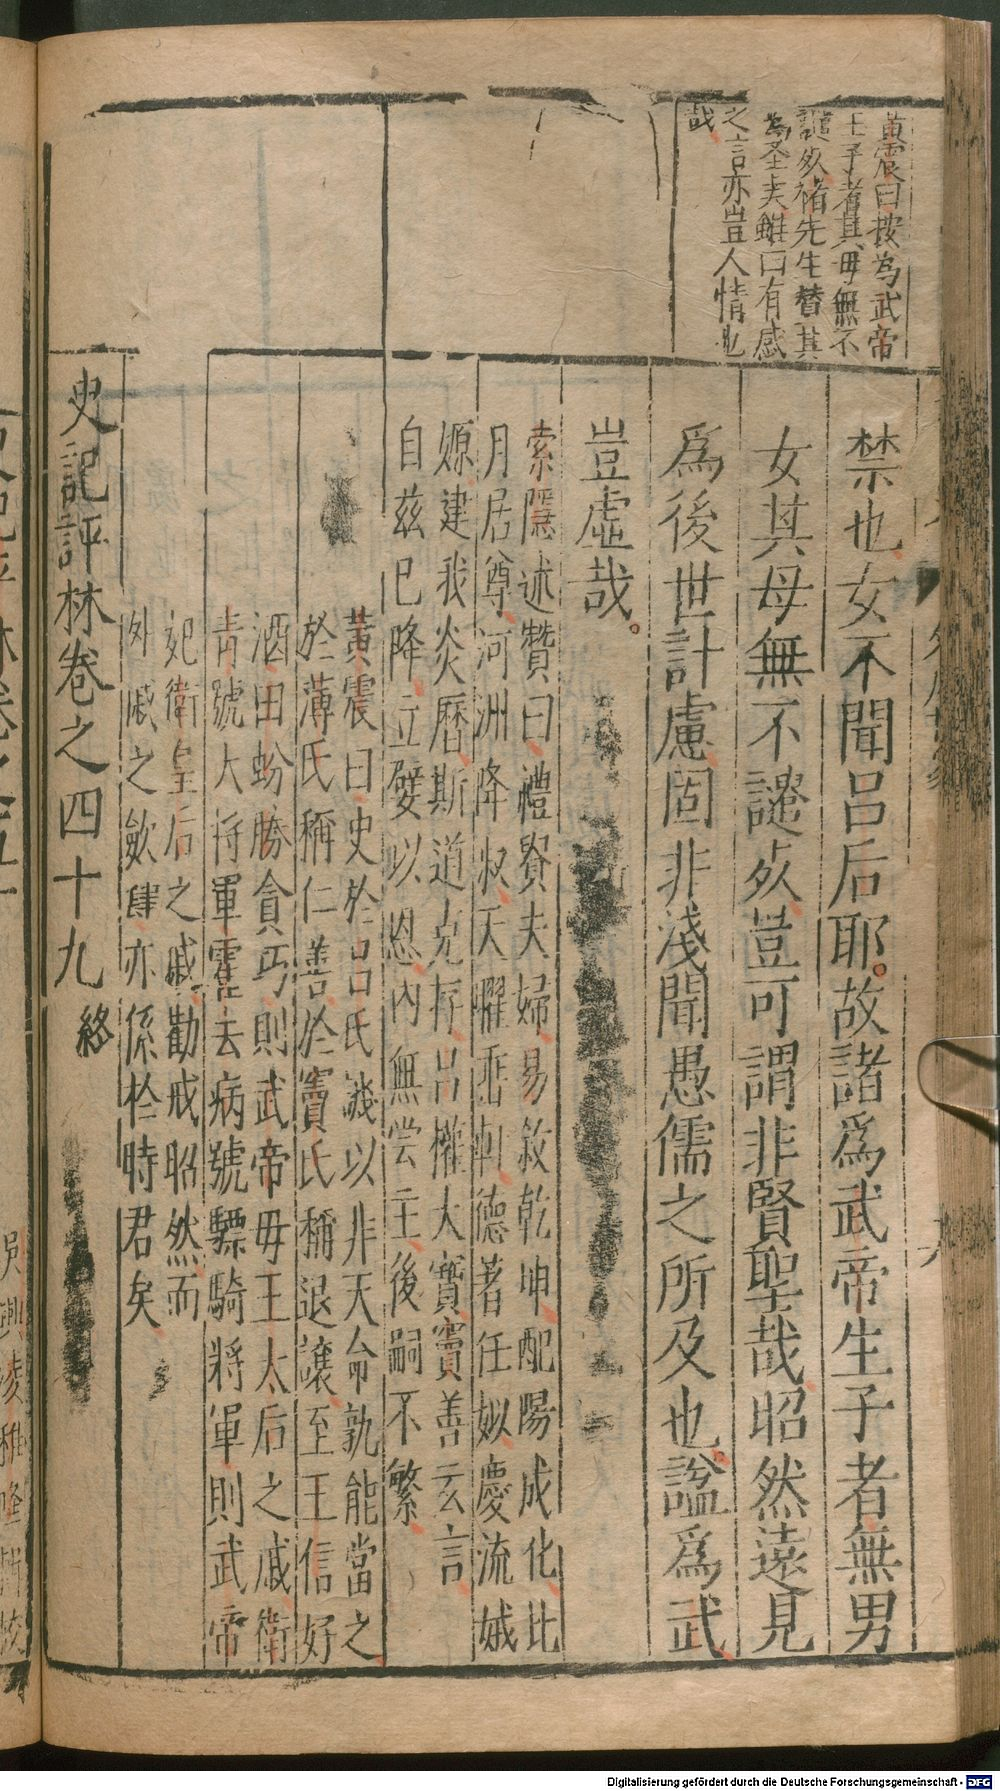 黃震曰按為武帝
王子者其母無不
譴死褚先生替其
為圣夫雖曰有感
之言亦豈人情也
哉
禁也女不聞呂后耶故諸爲武帝生子者無男
女其母無不譴死豈可謂非賢聖哉昭然遠見
爲後世計慮固非淺聞愚儒之所及也諡爲武
豈虛哉
索隱述贊曰禮貴夫婦易敘乾坤配陽成化比
月居尊河洲降淑天曜垂軒德著任姒慶流娀
嫄建我炎曆斯道克存呂權大寶竇善玄言
自茲已降立嬖以恩內無常主後嗣不繁
黃震曰史於呂氏譏以非天命孰能當之
於薄氏稱仁善於竇氏稱退讓至王信好
酒田蚡勝貪巧則武帝母王太后之戚衛
青號大將軍霍去病號驃騎將軍則武帝
妃衛皇后之戚勸戒昭然而
外戚之歛肆亦係於時君矣
史記評林卷之四十九 終
吳興凌稚隆輯校
Digitalisierung gefördert durch die Deutsche Forschungsgemeinschaft - DFG